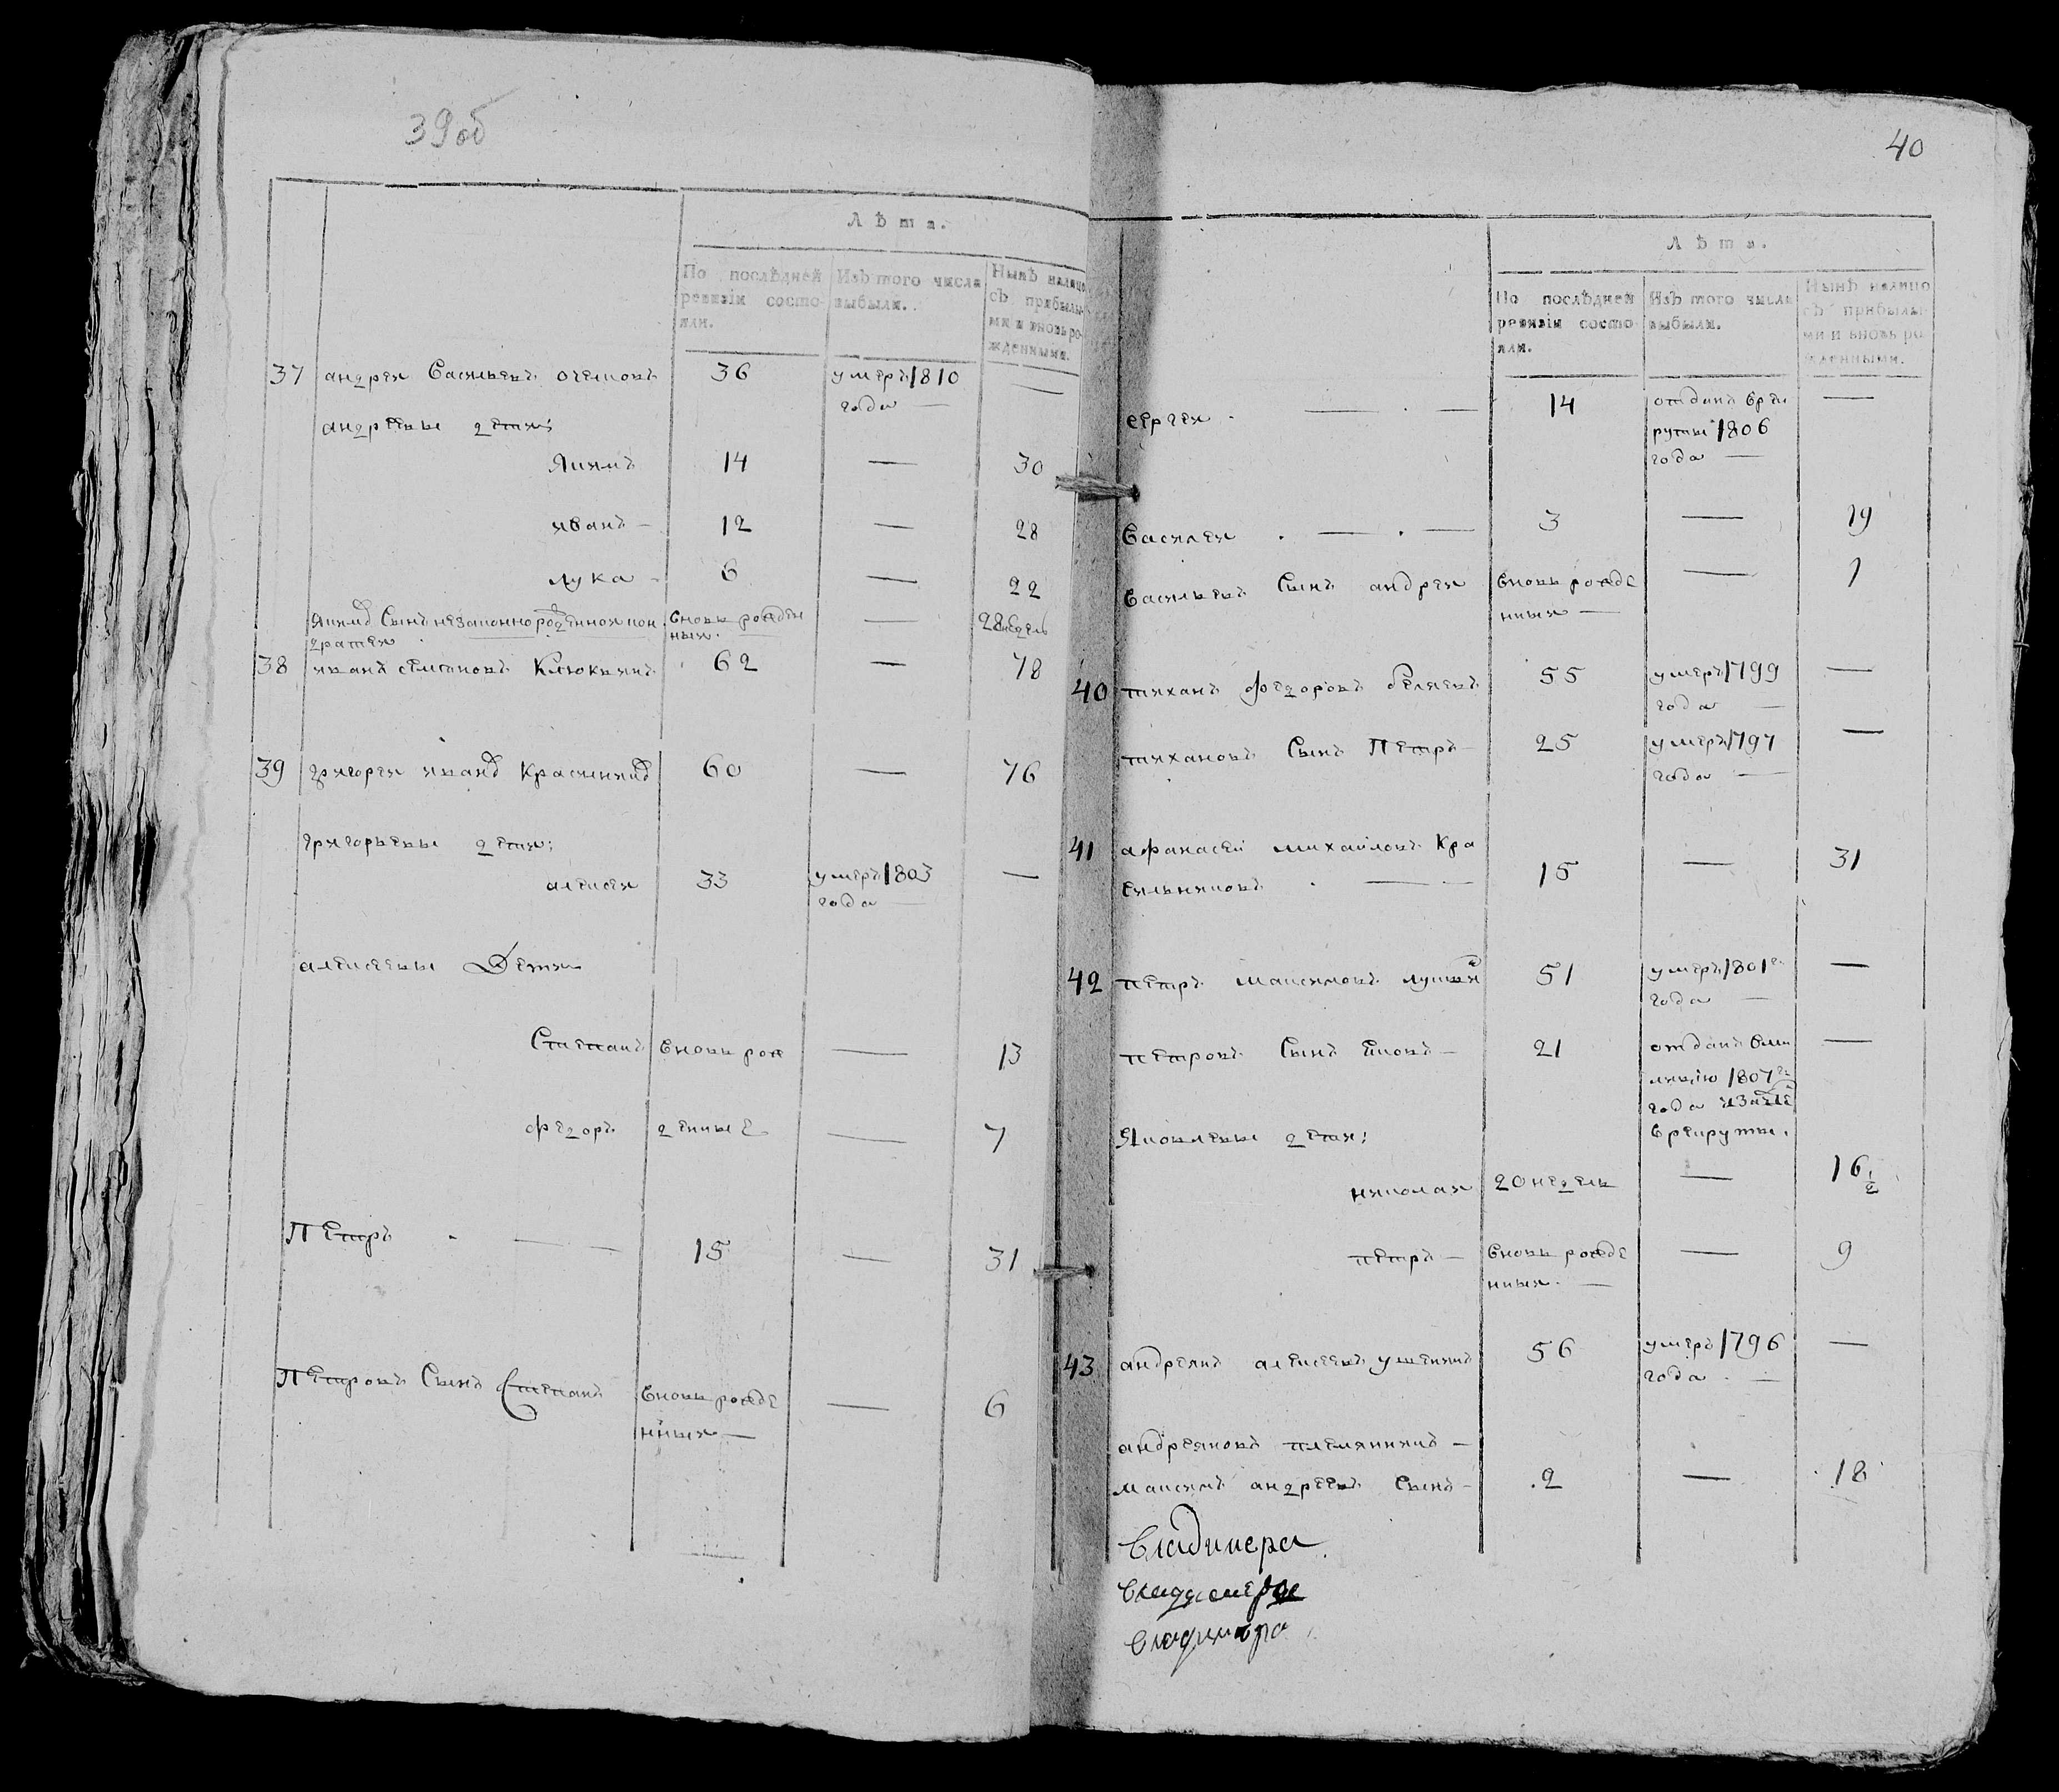 39об
Лѣта.
По послѣдней ревизіи состояли.
Изъ того числа выбыли.
Нынѣ налицо съ прибылыми и вновь рожденными.
37 андреи Васильевъ 36 умеръ 1810 —
года —
андреевы дети:
Якимъ 14 — 30
иванъ — 12 — 28
лука — 6 — 22
Якимъ Сынъ незаконнорожденнои кон вновь рожден — 28 недель
дратеи ныи.
38 иванъ семеновъ Клюкинъ 62 — 78
39 григореи иванъ 60 — 76
григорьевы дети:
алексеи 33 умеръ 1803 —
года —
алексеевы Дети
Степанъ вновь рож — 13
федоръ денные — 7
Петръ — — 15 — 31
Петровъ Сынъ Степанъ вновь рожде — 6
нныи —
40
Лѣта.
По послѣдней ревизіи состояли.
Изъ того числа выбыли.
Нынѣ налицо съ прибылыми и вновь рожденными.
сергеи — — 14 отданъ врек —
руты 1806
года —
Василеи — — 3 — 19
Васильевъ Сынъ андреи вновь рожде — 1
нныи —
40 тиханъ федоровъ беляевъ 55 умеръ 1799 —
года —
тихановъ Сынъ Петръ — 25 умеръ 1797 —
года —
41 афанасеи михаиловъ Кра
сильниковъ — — 15 — 31
42 петръ максимовъ 51 умеръ 1801г —
года —
петровъ Сынъ Яковъ — 21 отданъ вми —
лицію 1807г
года
врекруты.
Яковлевы дети:
николаи 20 недель — 16 1/2
петръ — вновь рожде — 9
нныи. —
43 андреянъ алексеевъ 56 умеръ 1796 —
года. —
андреяновъ племянникъ —
максимъ андреевъ Сынъ — 2 — 18
Владимера
Владимера
Владимера